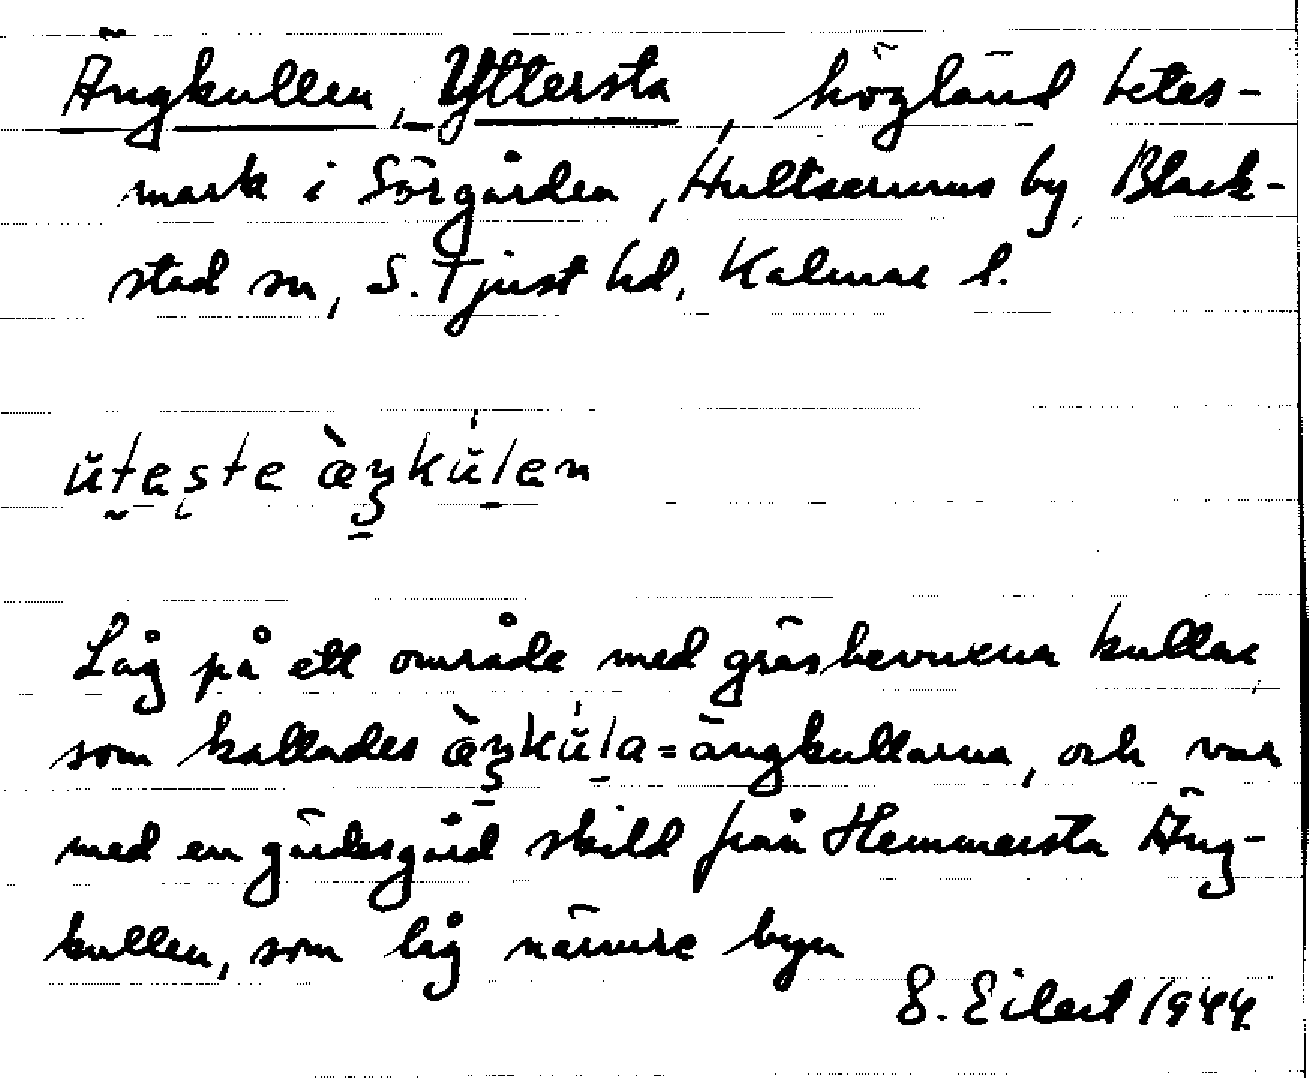 Ängkullen, Yttersta, högländ betes-
mark i Sörgården, Hultserums by, Black-
stad sn, S. Tjust hd, Kalmar l.
ŭteste æ̀ŋkŭlen
Låg på ett område med gräsbevuxna kullar,
som kallades æ̀ŋkŭla = ängkullarna, och var
med en gärdesgård skild från Hemmersta Äng-
kullen, som låg närmre byn
S. Eilert 1944